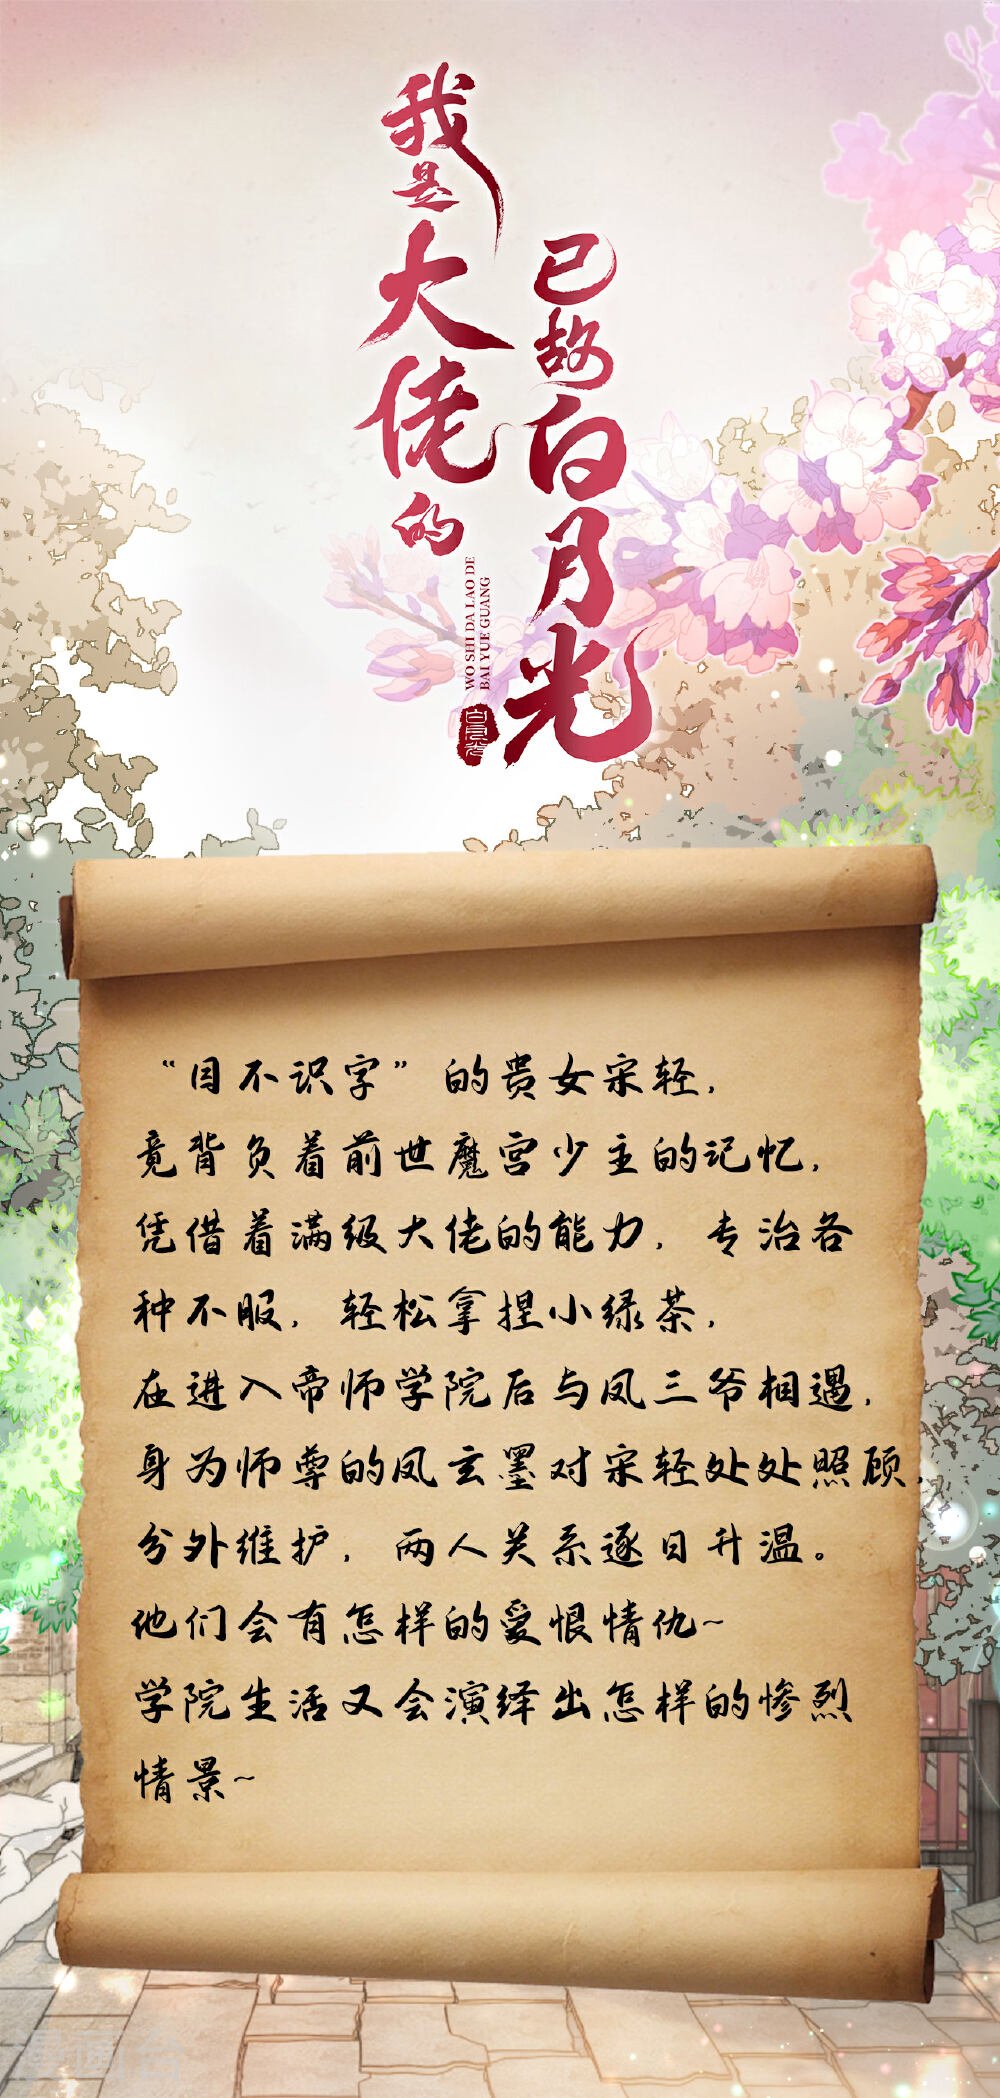 我是大佬的
已故白月光
WO SHI DA LAO DE
BAI YUE GUANG
白月光
“目不识字”的贵女宋轻，
竟背负着前世魔宫少主的记忆，
凭借着满级大佬的能力，专治各
种不服，轻松拿捏小绿茶，
在进入帝师学院后与凤三爷相遇，
身为师尊的凤玄墨对宋轻处处照顾，
分外维护，两人关系逐日升温。
他们会有怎样的爱恨情仇~
学院生活又会演绎出怎样的惨烈
情景~